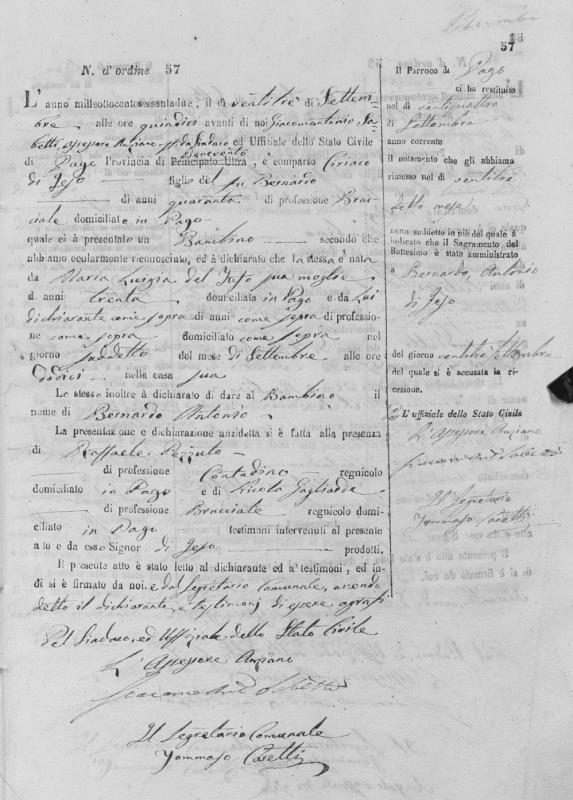 57
N. d'ordine 57
L'anno milleottocentosessantadue, il dì ventitrè di Settem-
bre alle ore quindici avanti di noi Giacomantonio Sa-
betti, assessore Anziano ff. da Sindaco ed Uffiziale dello Stato Civile
Benevento
di Pago Provincia di Principato Ultra, è comparso Ciriaco
di Jeso figlio del fu Bernardo
di anni quaranta di professione Brac-
ciale domiciliato in Pago
quale ci à presentato un Bambino secondo che
abbiamo ocularmente riconosciuto, ed à dichiarato che la stessa è nata
da Maria Luigia del sua moglie
d anni trenta domiciliata in Pago e da Lui
dichiarante come sopra di anni come sopra di professio-
ne come sopra domiciliato come sopra nel
giorno suddetto del mese di Settembre alle ore
dodici nella casa sua
Lo stesso inoltre à dichiarato di dare al Bambino il
nome di Bernardo Antonio
La presentazione e dichiarazione anzidetta si è fatta alla presenza
di Raffaele
di professione Contadino regnicolo
domiciliato in Pago e di Nicola Gagliarde
di professione Bracciale regnicolo domi-
ciliato in Pago testimoni intervenuti al presente
atto e da esso Signor di Jeso prodotti.
Il presente atto è stato letto al dichiarante ed a' testimoni, ed in-
di si è firmato da noi. e dal Segretario Comunale, avendo
detto il dichiarante, e testimonj di essere
Pel Sindaco, ed Uffiziale dello Stato Civile
L'Assessore Anziano
Giacomant Sabetti
Il Segretario Comunale
Tommaso
Il Parroco di Pago
ci ha restituito
nel dì ventiquattro
di Settembre
anno corrente
il notamento che gli abbiamo
rimesso nel dì ventitrè
detto mese
anno suddetto in piè del quale à
indicato che il Sagramento del
Battesimo è stato amministrato
a Bernardo, Antonio
di Jeso
del giorno ventitrè Settembre
del quale si è accusata la ri-
cezione.
L'uffiziale dello Stato Civile
L'Assessore Anziano
Giacomant Sabetti
Il Segretario
Tommaso